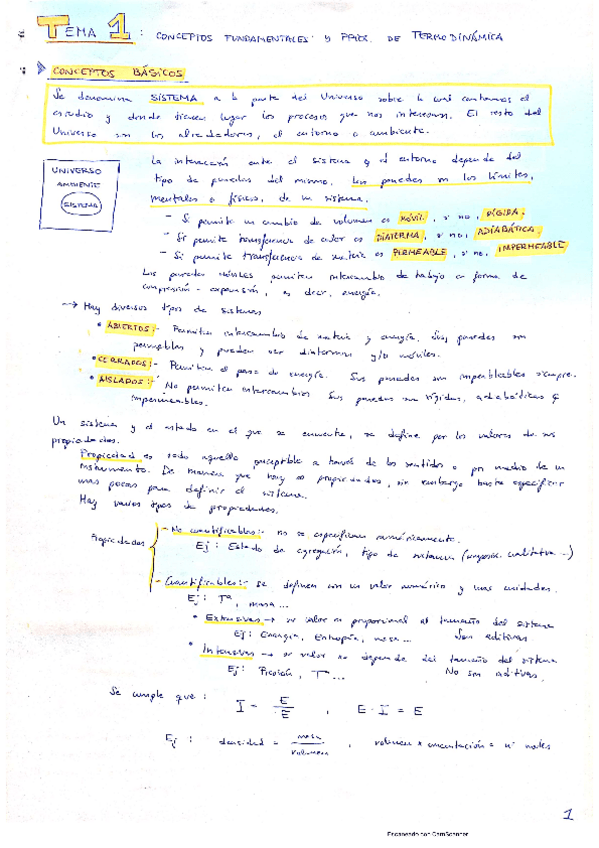 TEMA 1: CONCEPTOS FUNDAMENTALES y PPIOS. DE TERMODINÁMICA
CONCEPTOS BÁSICOS
Se denomina SISTEMA a la parte del Universo sobre la cual centramos el
estudio y donde tienen lugar los procesos que nos interesan. El resto del
Universo son los alrededores, el entorno o ambiente.
UNIVERSO
AMBIENTE
SISTEMA
La interacción entre el sistema y el entorno depende del
tipo de paredes del mismo. Las paredes son los límites,
mentales o físicos, de un sistema.
- Si permite un cambio de volumen es MÓVIL, si no, RÍGIDA.
- Si permite transferencia de calor es DIATERMA, si no, ADIABÁTICA.
- Si permite transferencia de materia es PERMEABLE, si no, IMPERMEABLE
Las paredes móviles permiten intercambio de trabajo en forma de
compresión - expansión, es decir, energía.
→ Hay diversos tipos de sistemas
• ABIERTOS:- Permiten intercambio de materia y energía. Sus paredes son
permeables y pueden ser diatermas y/o móviles.
• CERRADOS:- Permiten el paso de energía. Sus paredes son impermeables siempre.
• AISLADOS:- No permiten intercambios. Sus paredes son rígidas, adiabáticas e
impermeables.
Un sistema y el estado en el que se encuentra, se define por los valores de sus
propiedades.
Propiedad es todo aquello susceptible a través de los sentidos o por medio de un
instrumento. De manera que hay propiedades, sin embargo basta especificar
unas pocas para definir el sistema.
Hay varios tipos de propiedades.
Propiedades
- No cuantificables:- no se especifican numéricamente.
Ej: Estado de agregación, tipo de sustancia (compos. cualitativa...)
- Cuantificables:- se definen con un valor numérico y unas unidades.
Ej: Tª, masa...
• Extensivas → su valor es proporcional al tamaño del sistema
Ej: Energía, Entropía, masa... Son aditivas.
• Intensivas → su valor no depende del tamaño del sistema
Ej: Presión, T... No son aditivas.
Se cumple que: I = E/E , E · I = E
Ej: densidad = masa/volumen , volumen × concentración = nº moles
1
Escaneado con CamScanner